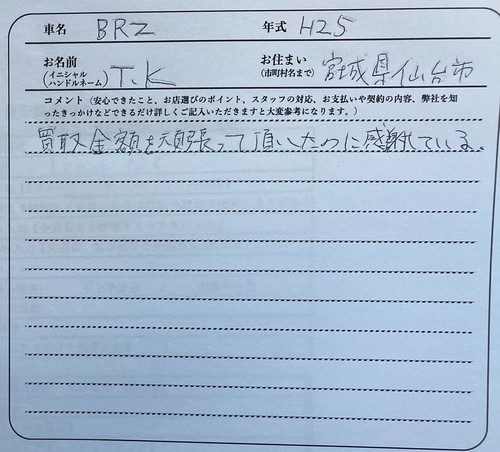 車名 BRZ 年式 H25
お名前 (イニシャル ハンドルネーム) T.K お住まい (市町村名まで)宮城県仙台市
コメント（安心できたこと、お店選びのポイント、スタッフの対応、お支払いや契約の内容、弊社を知
ったきっかけなどできるだけ詳しくご記入いただきますと大変参考になります。）
買取金額を頑張って頂いたのに感謝している。